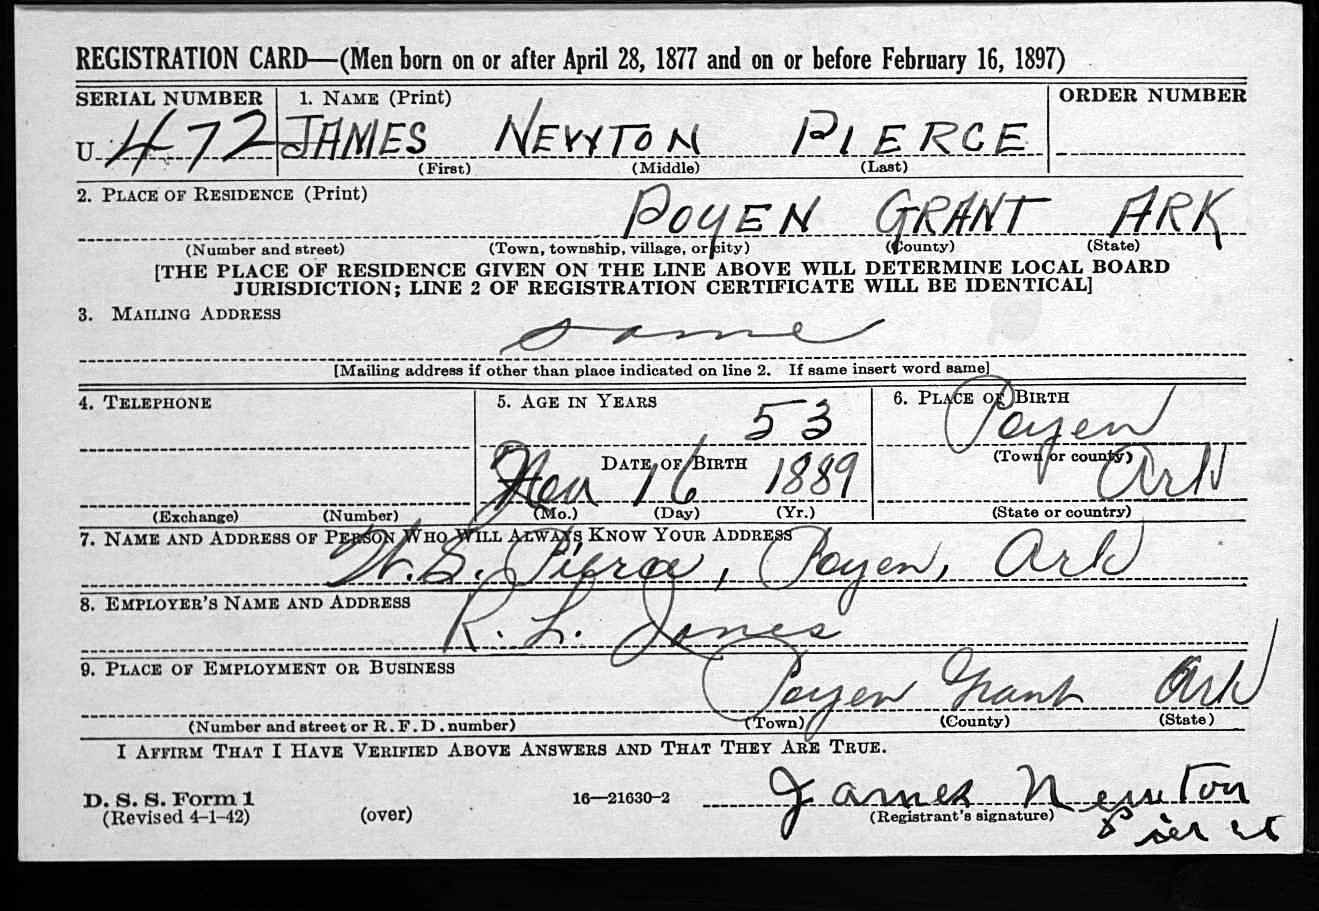 REGISTRATION CARD—(Men born on or after April 28, 1877 and on or before February 16, 1897)
SERIAL NUMBER 1. NAME (Print) ORDER NUMBER
U 472 JAMES NEWTON PIERCE
(First) (Middle) (Last)
2. PLACE OF RESIDENCE (Print)
POYEN GRANT ARK
(Number and street) (Town, township, village, or city) (County) (State)
[THE PLACE OF RESIDENCE GIVEN ON THE LINE ABOVE WILL DETERMINE LOCAL BOARD
JURISDICTION; LINE 2 OF REGISTRATION CERTIFICATE WILL BE IDENTICAL]
3. MAILING ADDRESS
same
[Mailing address if other than place indicated on line 2. If same insert word same]
4. TELEPHONE 5. AGE IN YEARS 6. PLACE OF BIRTH
53 Poyen
DATE OF BIRTH (Town or county)
16 1889 Ark
(Exchange) (Number) (Mo.) (Day) (Yr.) (State or country)
7. NAME AND ADDRESS OF PERSON WHO WILL ALWAYS KNOW YOUR ADDRESS
W. S. Pierce, Poyen, Ark
8. EMPLOYER'S NAME AND ADDRESS
R. L. Jones
9. PLACE OF EMPLOYMENT OR BUSINESS
Poyen Grant Ark
(Number and street or R. F. D. number) (Town) (County) (State)
I AFFIRM THAT I HAVE VERIFIED ABOVE ANSWERS AND THAT THEY ARE TRUE.
D. S. S. Form 1 16—21630-2 James Newton
(Revised 4-1-42) (over) (Registrant's signature) Pierce